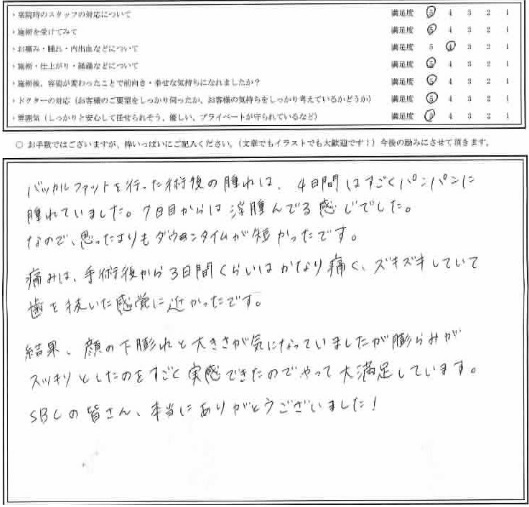 ・来院時のスタッフの対応について 満足度 5 4 3 2 1
・施術を受けてみて 満足度 5 4 3 2 1
・お痛み・腫れ・内出血などについて 満足度 5 4 3 2 1
・施術・仕上がり・経過などについて 満足度 5 4 3 2 1
・施術後、容姿が変わったことで前向き・幸せな気持ちになれましたか？ 満足度 5 4 3 2 1
・ドクターの対応（お客様のご要望をしっかり伺ったか、お客様の気持ちをしっかり考えているかどうか） 満足度 5 4 3 2 1
・雰囲気（しっかりと安心して任せられそう、優しい、プライベートが守られているなど） 満足度 5 4 3 2 1
○ お手数ではございますが、枠いっぱいにご記入ください。（文章でもイラストでも大歓迎です！）今後の励みにさせて頂きます。
バッカルファットを行った術後の腫れは、4日間はすごくパンパンに
腫れていました。7日目からは浮腫んでる感じでした。
なので、思ったよりもダウンタイムが短かったです。
痛みは、手術後から3日間くらいはかなり痛く、ズキズキしていて
歯を抜いた感覚に近かったです。
結果、顔の下膨れと大きさが気になっていましたが膨らみが
スッキリとしたのをすごく実感できたのでやって大満足しています。
SBCの皆さん、本当にありがとうございました！